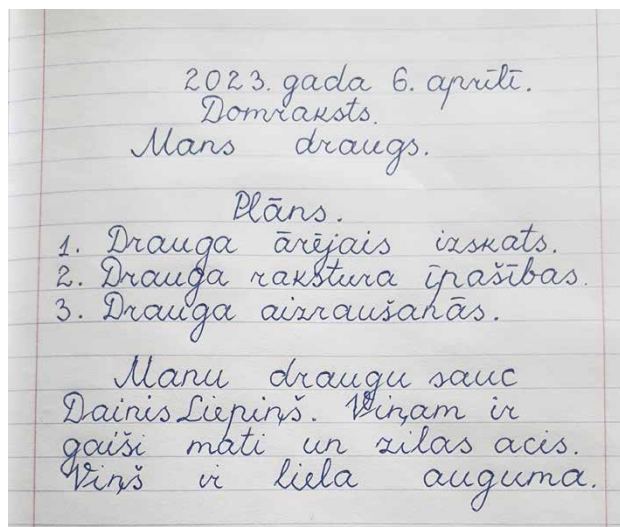 2023. gada 6. aprīlī.
Domraksts.
Mans draugs.
Plāns.
1. Drauga ārējais izskats.
2. Drauga rakstura īpašības.
3. Drauga aizraušanās.
Manu draugu sauc
Dainis Liepiņš. Viņam ir
gaiši mati un zilas acis.
Viņš ir liela auguma.